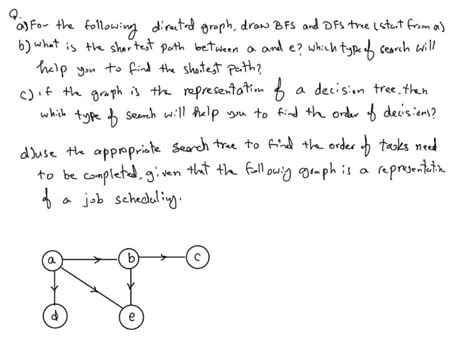 Q.
a) For the following directed graph, draw BFS and DFS tree (start from a)
b) what is the shortest path between a and e? which type of search will
help you to find the shotest path?
c) if the graph is the representation of a decision tree, then
which type of search will help you to find the order of decisions?
d) use the appropriate search tree to find the order of tasks need
to be completed, given that the following graph is a representation
of a job scheduling.
a b c
d e